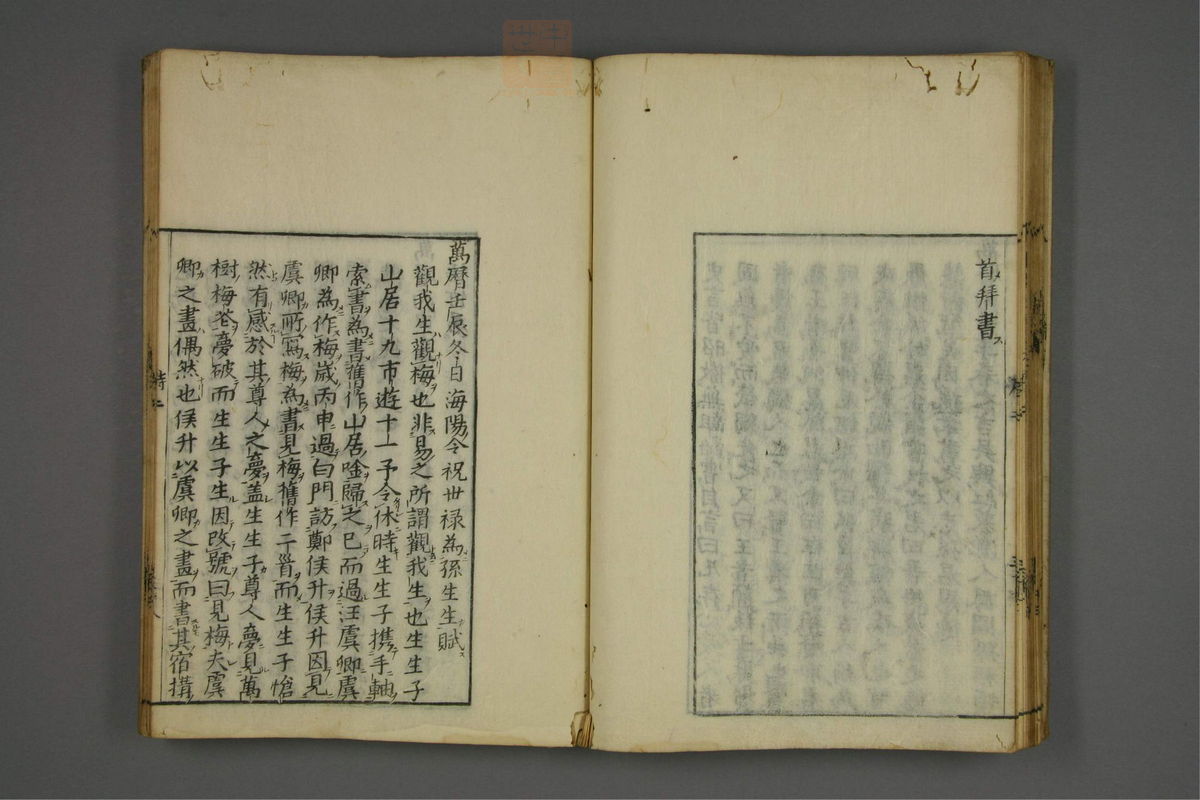 首拜書
萬曆壬辰冬日海陽令祝世祿為孫生生賦
觀我生觀梅也非易之所謂觀我生也生生子
山居十九市遊十一予令休時生生子攜手軸
索書為書舊作山居唫歸之已而過汪虞卿虞
卿為作梅歲丙申過白門訪鄭侯升侯升因見
虞卿所寫梅為書見梅舊作二首而生生子愴
然有感於其尊人之夢蓋生生子尊人夢見萬
樹梅花夢破而生生子生因改號曰見梅夫虞
卿之畫偶然也侯升以虞卿之畫而書其宿搆